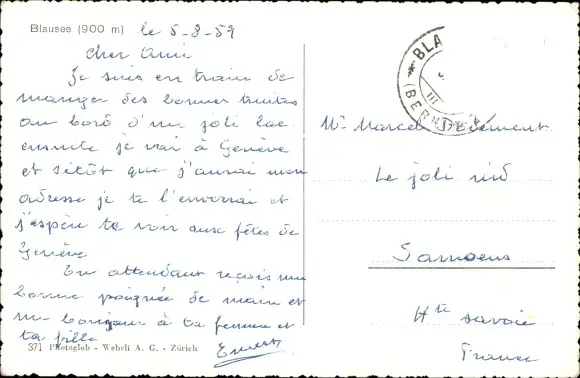 Blausee (900 m) le 5-8-59
cher Ami
Je suis en train de
manger des bonnes truites
au bord d'un joli lac
ensuite je vai à Genève
et sitôt que j'aurai mon
adresse je te l'enverrai et
j'espère te voir aux fêtes de
Genève
En attendant reçois une
bonne poignée de main et
un bonjour à ta femme et
ta fille
Ernest
371 Photoglob - Wehrli A. G. - Zürich
BLA
(BERN
III
Mr Marcel
Le joli nid
Samoens
Hte savoie
France